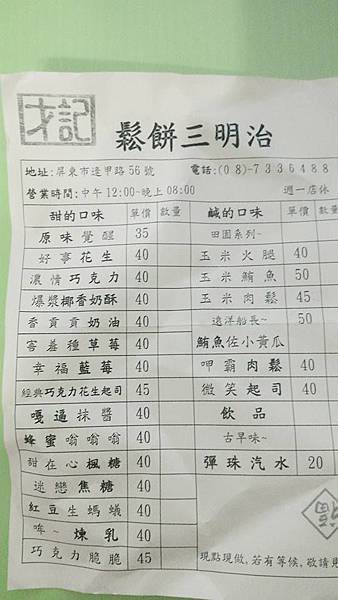 才記
鬆餅三明治
地址:屏東市逢甲路56號 電話:(08)-7336488
營業時間:中午12:00-晚上08:00 週一店休
甜的口味 單價 數量 鹹的口味 單價 數量
原味覺醒 35 田園系列~
好事花生 40 玉米火腿 40
濃情巧克力 40 玉米鮪魚 50
爆漿椰香奶酥 40 玉米肉鬆 45
香貢貢奶油 40 遠洋船長~ 50
害羞種草莓 40 鮪魚佐小黃瓜
幸福藍莓 40 呷霸肉鬆 40
經典巧克力花生起司 45 微笑起司 40
嘎逼抹醬 40 飲品
蜂蜜嗡嗡嗡 40 古早味~
甜在心楓糖 40 彈珠汽水 20
迷戀焦糖 40
紅豆生螞蟻 40
哞~煉乳 40
巧克力脆脆 45 現點現做,若有等候,敬請見